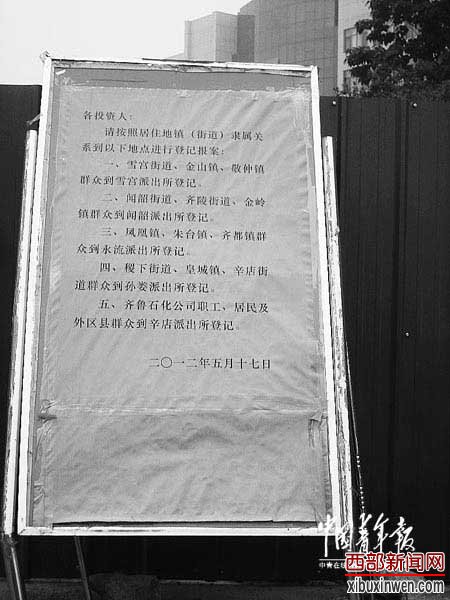 各投资人：
请按照居住地镇（街道）隶属关
系到以下地点进行登记报案：
一、雪宫街道、金山镇、敬仲镇
群众到雪宫派出所登记。
二、闻韶街道、齐陵街道、金岭
镇群众到闻韶派出所登记。
三、凤凰镇、朱台镇、齐都镇群
众到永流派出所登记。
四、稷下街道、皇城镇、辛店街
道群众到孙娄派出所登记。
五、齐鲁石化公司职工、居民及
外区县群众到辛店派出所登记。
二〇一二年五月十七日
中国青年报
中青在线
西部新闻网
xibuxinwen.com